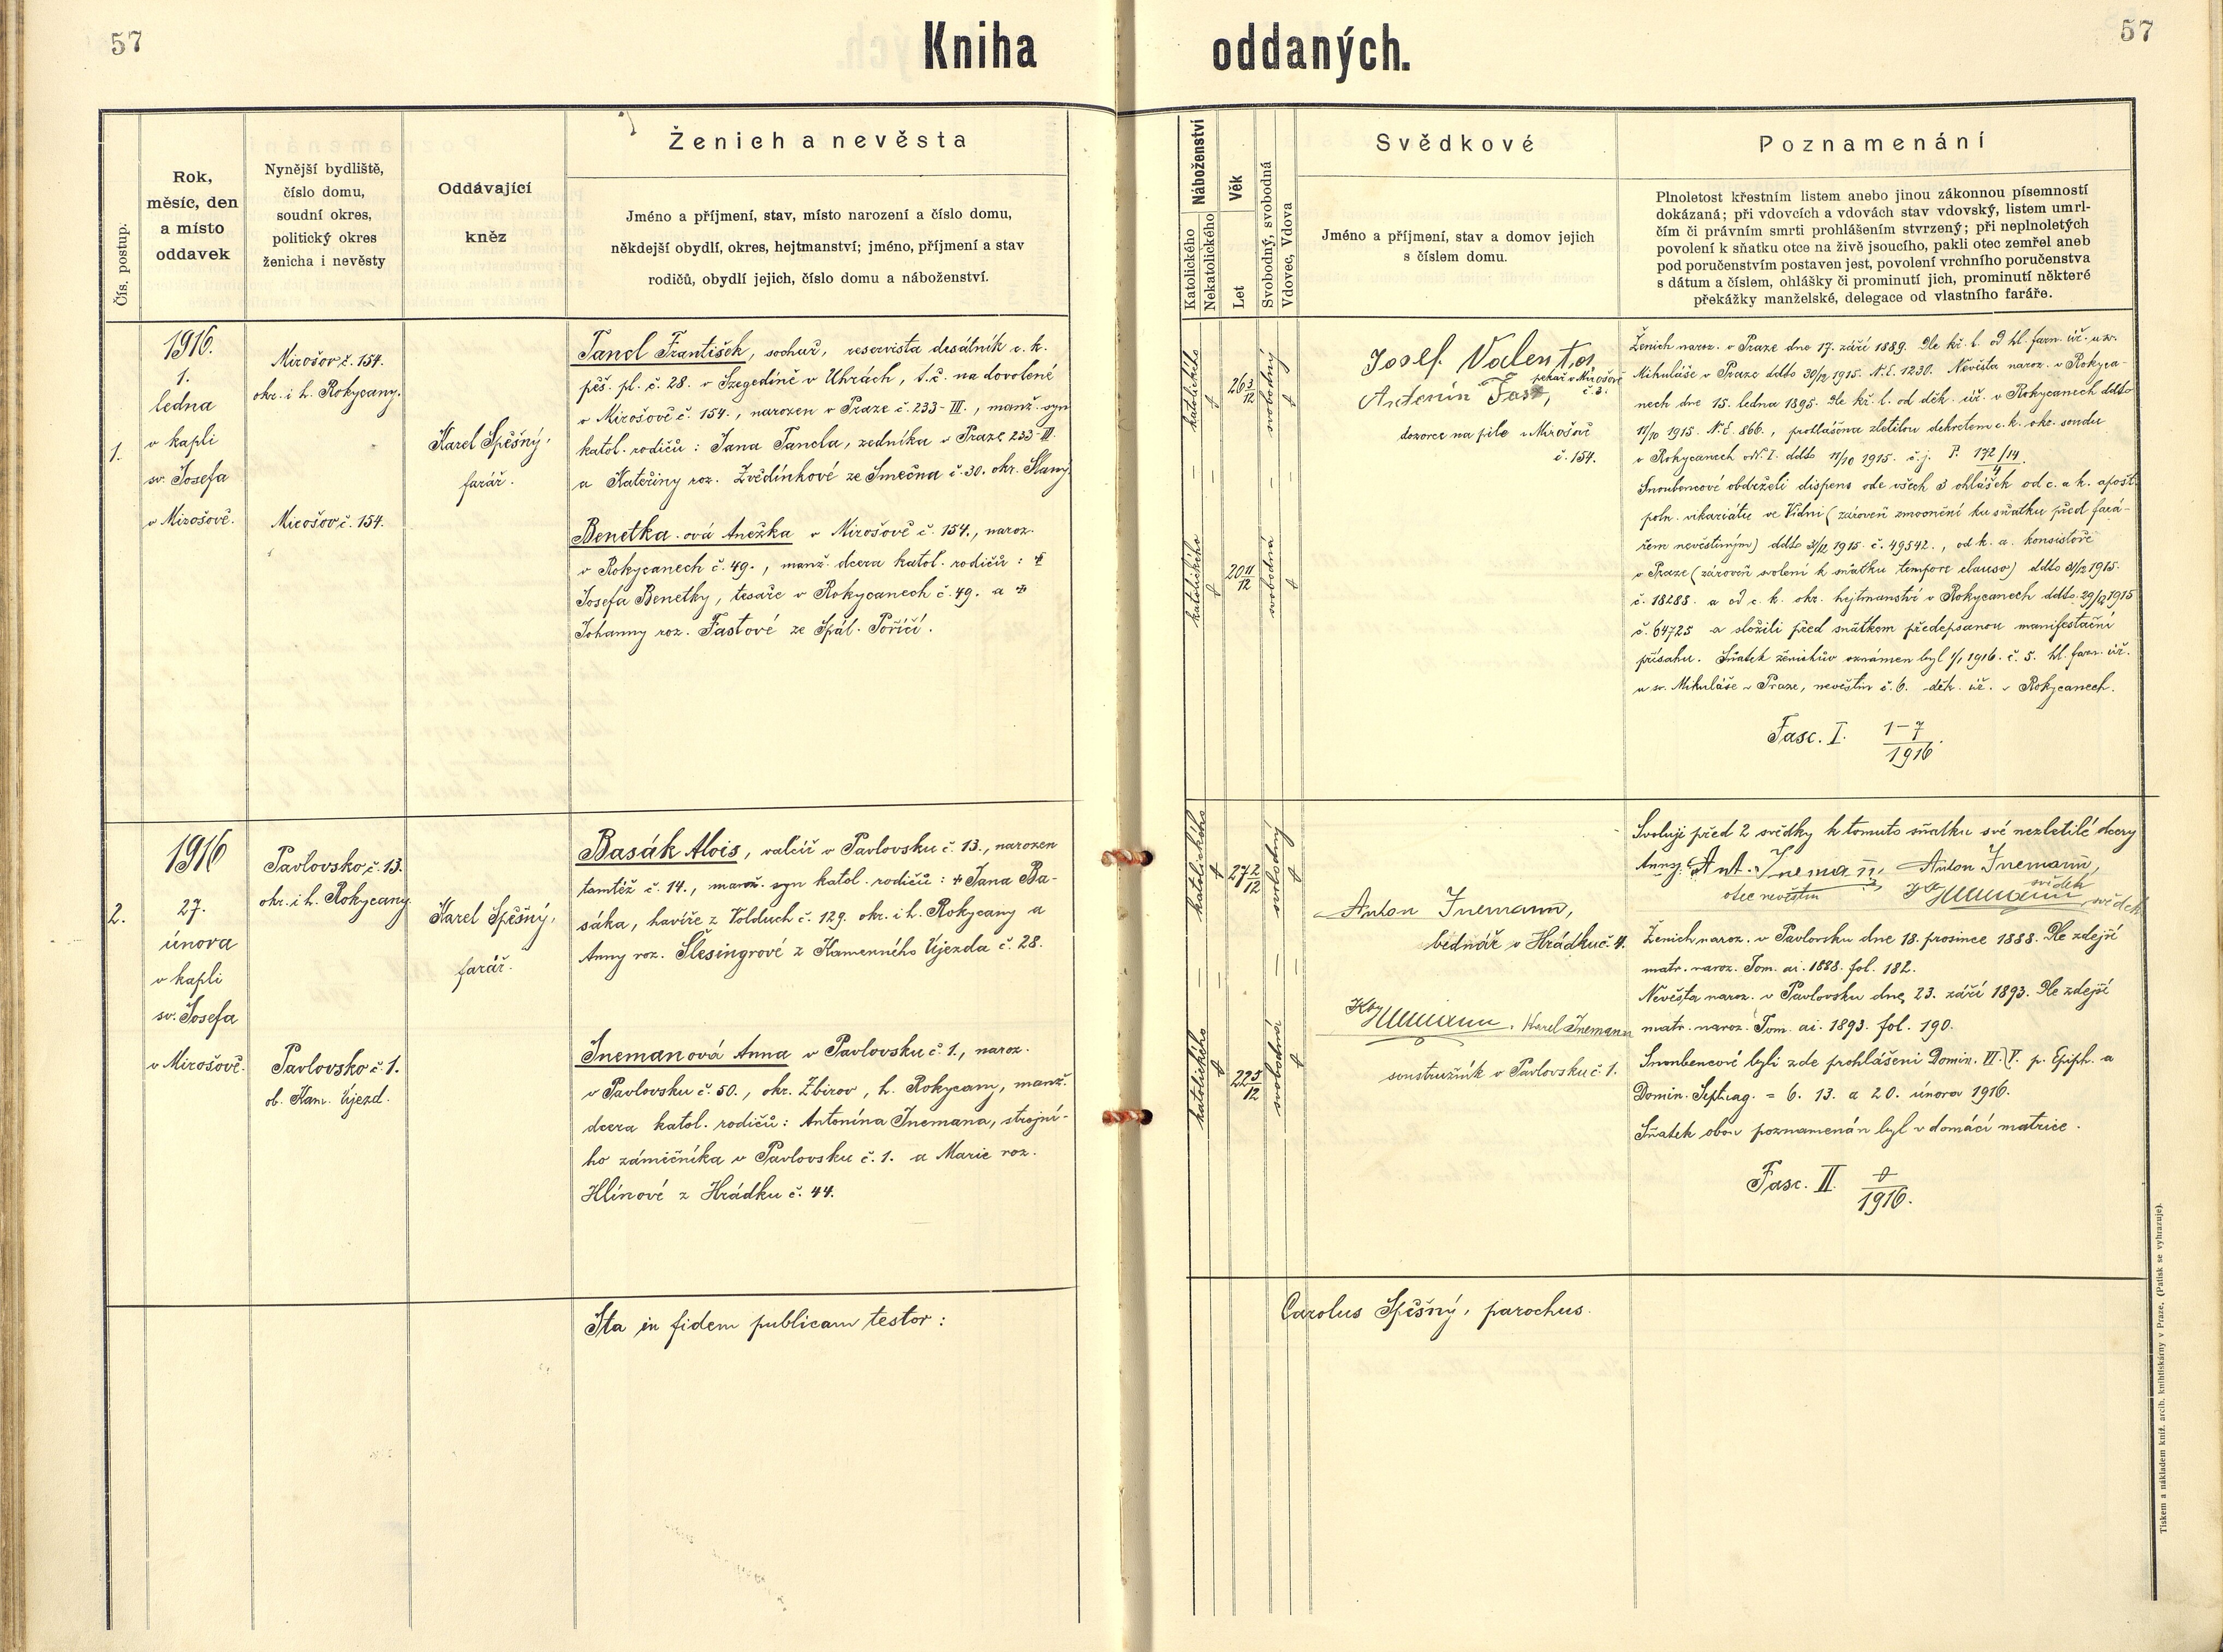 57
Kniha oddaných.
57
Čís. postup.
Rok,
měsíc, den
a místo
oddavek
Nynější bydliště,
číslo domu,
soudní okres,
politický okres
ženicha i nevěsty
Oddávající
kněz
Ženich a nevěsta
Jméno a příjmení, stav, místo narození a číslo domu,
někdejší obydlí, okres, hejtmanství; jméno, příjmení a stav
rodičů, obydlí jejich, číslo domu a náboženství.
Náboženství
Katolického
Nekatolického
Věk
Let
Svobodný, svobodná
Vdovec, Vdova
Svědkové
Jméno a příjmení, stav a domov jejich
s číslem domu.
Poznamenání
Plnoletost křestním listem anebo jinou zákonnou písemností
dokázaná; při vdovcích a vdovách stav vdovský, listem umrl-
čím či právním smrti prohlášením stvrzený; při neplnoletých
povolení k sňatku otce na živě jsoucího, pakli otec zemřel aneb
pod poručenstvím postaven jest, povolení vrchního poručenstva
s dátum a číslem, ohlášky či prominutí jich, prominutí některé
překážky manželské, delegace od vlastního faráře.
1.
1916.
1.
ledna
v kapli
sv. Josefa
v Mirošově.
Mirošov č. 154.
okr. i h. Rokycany.
Mirošov č. 154.
Karel Spěšný,
farář.
Tancl František, sochař, reservista desátník c. k.
pěš. pl. č. 28. v Szegedíně v Uhrách, t. č. na dovolené
v Mirošově č. 154., narozen v Praze č. 233-III., manž. syn
katol. rodičů: Jana Tancla, zedníka v Praze 233-III.
a Kateřiny roz. Zvědínkové ze Smečna č. 30. okr. Slaný
Benetka-ová Anežka v Mirošově č. 154., naroz.
v Rokycanech č. 49., manž. dcera katol. rodičů: +
Josefa Benetky, tesaře v Rokycanech č. 49. a +
Johanny roz. Fastové ze Spál. Poříčí.
katolického
26 3/12
svobodný
katolického
20 11/12
svobodná
Josef Valenta,
pekař v Mirošově
č. 3.
Antonín Fast,
dozorce na pile v Mirošově
č. 154.
Ženich naroz. v Praze dne 17. září 1889. Dle kř. l. od hl. farn. úř. u sv.
Mikuláše v Praze ddto 30/12 1915. N. E. 1230. Nevěsta naroz. v Rokyca-
nech dne 15. ledna 1895. Dle kř. l. od děk. úř. v Rokycanech ddto
11/10 1915. N. E. 866., prohlášena zletilou dekretem c. k. okr. soudu
v Rokycanech odd. I. ddto 11/10 1915. č. j. P. 172/14.
4
Snoubencové obdrželi dispens ode všech 3 ohlášek od c. a k. apošt.
poln. vikariátu ve Vídni (zároveň zmocnění ku sňatku před fará-
řem nevěstiným) ddto 3/12 1915. č. 49542., od k. a. konsistoře
v Praze (zároveň svolení k sňatku tempore clauso) ddto 31/12 1915.
č. 18288. a od c. k. okr. hejtmanství v Rokycanech ddto 29/12 1915
č. 64725 a složili před sňatkem předepsanou manifestační
přísahu. Sňatek ženichův oznámen byl 1/1 1916. č. 5. hl. farn. úř.
u sv. Mikuláše v Praze, nevěstin č. 6. děk. úř. v Rokycanech.
Fasc. I. 1-7/1916.
2.
1916
27.
února
v kapli
sv. Josefa
v Mirošově.
Pavlovsko č. 13.
okr. i h. Rokycany
Pavlovsko č. 1.
ob. Kam. Újezd.
Karel Spěšný,
farář.
Basák Alois, valcíř v Pavlovsku č. 13., narozen
tamtéž č. 14., manž. syn katol. rodičů: + Jana Ba-
sáka, havíře z Volduch č. 129. okr. i h. Rokycany a
Anny roz. Šlesingrové z Kamenného Újezda č. 28.
Inemanová Anna v Pavlovsku č. 1., naroz.
v Pavlovsku č. 50., okr. Zbirov, h. Rokycany, manž.
dcera katol. rodičů: Antonína Inemana, strojní-
ho zámečníka v Pavlovsku č. 1. a Marie roz.
Hlínové z Hrádku č. 44.
katolického
27 2/12
svobodný
katolického
22 5/12
svobodná
Anton Inemann,
bednář v Hrádku č. 4.
Inemann. Karel Inemann
soustružník v Pavlovsku č. 1.
Svoluji před 2 svědky k tomuto sňatku své nezletilé dcery
Anny. Ant. Inemann, Anton Inemann,
otec nevěstin svědek
Inemann, svědek
Ženich naroz. v Pavlovsku dne 18. prosince 1888. Dle zdejší
matr. naroz. Tom. ai. 1888. fol. 182.
Nevěsta naroz. v Pavlovsku dne 23. září 1893. Dle zdejší
matr. naroz. Tom. ai. 1893. fol. 190.
Snoubencové byli zde prohlášeni Domin. VI. V. p. Epiph. a
Domin. Septuag. = 6. 13. a 20. února 1916.
Sňatek obou poznamenán byl v domácí matrice.
Fasc. II /1916.
Ita in fidem publicam testor: Carolus Spěšný, parochus.
Tiskem a nákladem kníž. arcib. knihtiskárny v Praze. (Patisk se vyhrazuje).